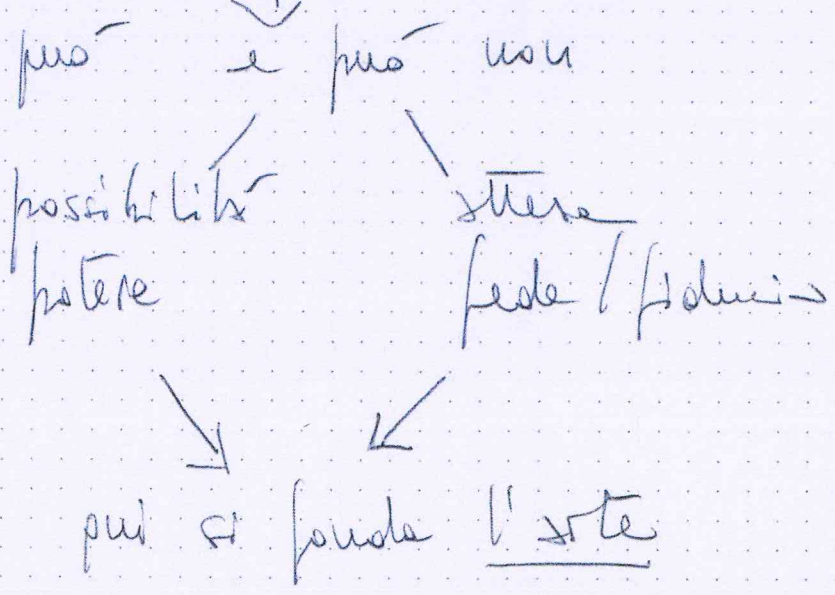 può e può non
possibilità attesa
potere fede / fiducia
qui si fonda l'arte